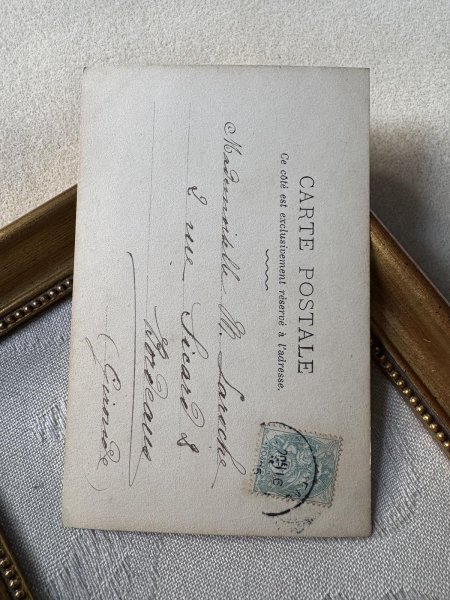 CARTE POSTALE
Ce côté est exclusivement réservé à l'adresse.
Mademoiselle M. Laroche
8 rue Sicard 8
Bordeaux
(Gironde)